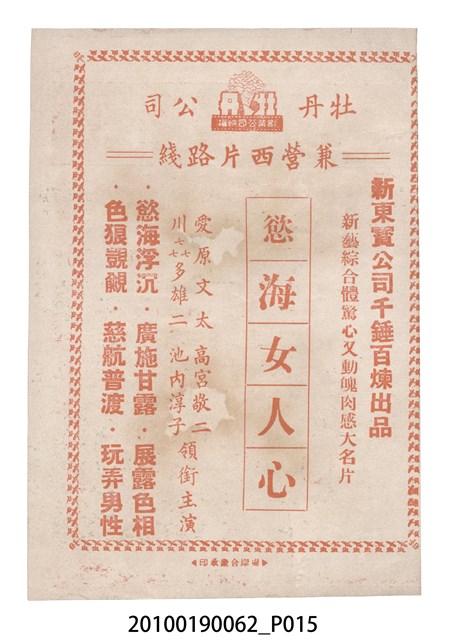 牡丹公司
影業公司發行
兼營西片路綫
新東寶公司千錘百煉出品
新藝綜合體驚心又動魄肉感大名片
慾海女人心
愛原文太 高宮敬二
川七七多雄二 池內淳子 領銜主演
慾海浮沉·廣施甘露·展露色相
色狠覬覦·慈航普渡·玩弄男性
20100190062_P015